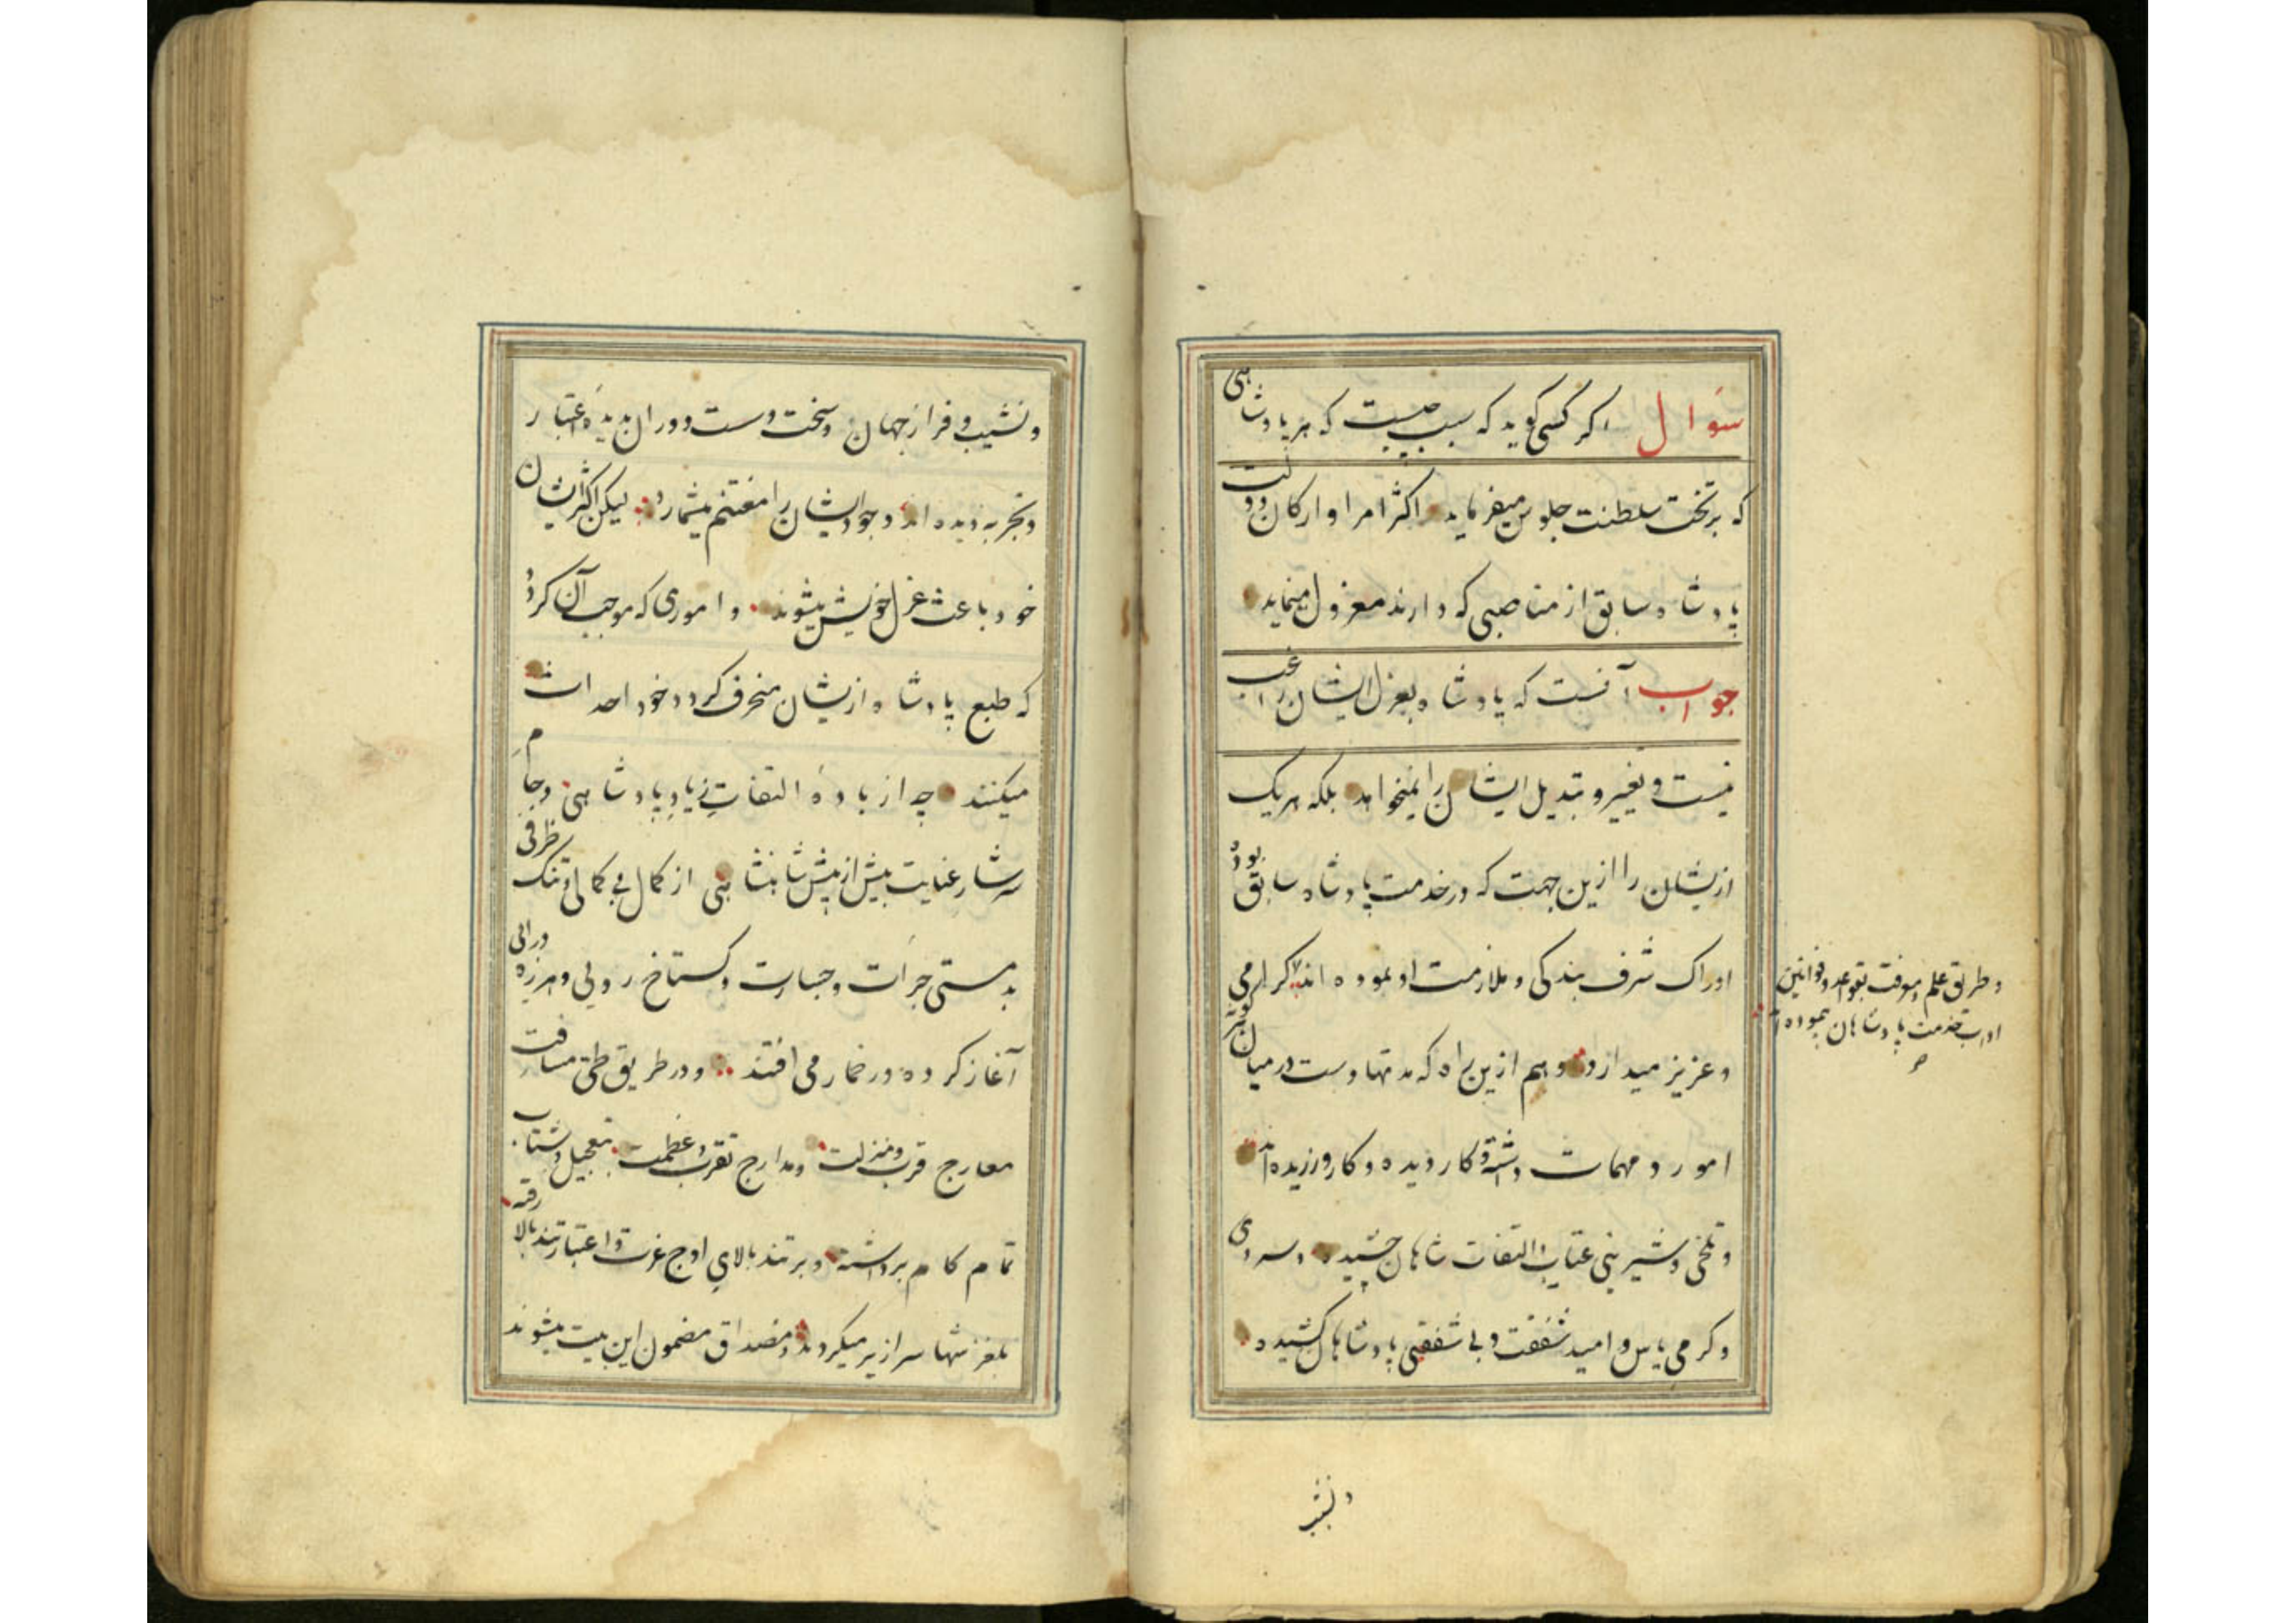 سؤال اگر کسی گوید که سبب چیست که هر پادشاهی
که بر تخت سلطنت جلوس میفرماید اکثر امرا و ارکان دولت
پادشاه سابق از مناصبی که دارند معزول مینماید
جواب آنست که پادشاه بعزل ایشان راغب
نیست و تغییر و تبدیل ایشان را نمیخواهد بلکه هر یک
ازیشان را ازین جهت که در خدمت پادشاه سابق بوده
ادراک شرف بندگی و ملازمت او نموده اند گرامی
و طریق علم و معرفت بقواعد و قوانین
ادب خدمت پادشاهان پیموده
و عزیز میدارد و هم ازین راه که مدتها دست درمیان
امور و مهمات داشته و کار دیده و کار ورزیده اند
و تلخی و شیرینی عتاب و التفات شاهان چشیده و سردی
و گرمی یاس و امید شفقت و بی شفقتی پادشاهان کشیده
و نشیب
و نشیب و فراز جهان و سخت و سست دوران بدیده اعتبار
و تجربه دیده اند وجود ایشان را مغتنم میشمارد لیکن اکثر ایشان
خود باعث عزل خویش میشوند و اموری که موجب آن گردد
که طبع پادشاه ازیشان منحرف گردد خود احداث
میکنند چه از بادهٔ التفات زیاد پادشاهی و جام
سرشار عنایت بیش از پیش شاهنشاهی از کمال بی کمالی و تنک ظرفی
بدمستی جرأت و جسارت و گستاخ رویی و هرزه درائی
آغاز کرده در خمار می افتند و در طریق طی مسافت
معارج قرب و منزلت و مدارج تقرب و عظمت بتعجیل و شتاب رفته
تمام کام برداشته و بر تند بالای اوج عزت و اعتبار تند بالا
بلغزشها سرازیر میگردند و مصداق مضمون این بیت میشوند